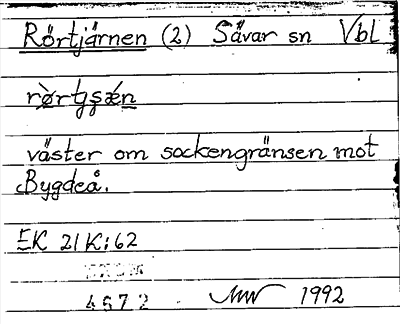 Rörtjärnen (2) Sävar sn Vbl
väster om sockengränsen mot
Bygdeå.
EK 21K:62
4572
1992